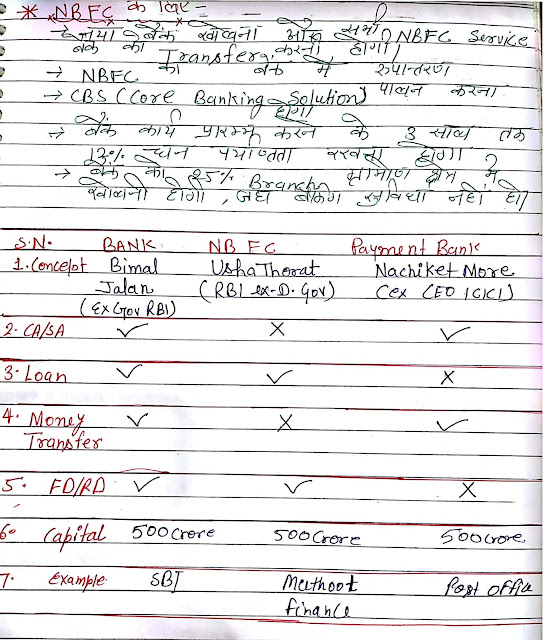 * NBFC के लिए -
→ नया बैंक खोलना और सभी NBFC Service
बैंक को Transfer करना होगा।
→ NBFC का बैंक में रुपान्तरण
→ CBS (Core Banking Solution) पालन करना
होगा।
→ बैंक कार्य प्रारम्भ करने के 3 साल तक
13% धन पर्याप्तता रखना होगा।
→ बैंक को 25% Branch ग्रामीण क्षेत्र में
खोलनी होगी, जहाँ बैंकिंग सुविधा नही हो।
S.N. BANK NBFC Payment Bank
1. Concept Bimal Usha Thorat Nachiket More
Jalan (RBI ex-D. Gov) (ex CEO ICICI)
(Ex Gov RBI)
2. CA/SA ✓ X ✓
3. Loan ✓ ✓ X
4. Money ✓ X ✓
Transfer
5. FD/RD ✓ ✓ X
6. Capital 500 Crore 500 Crore 500 crore
7. Example SBI Muthoot Post Office
finance